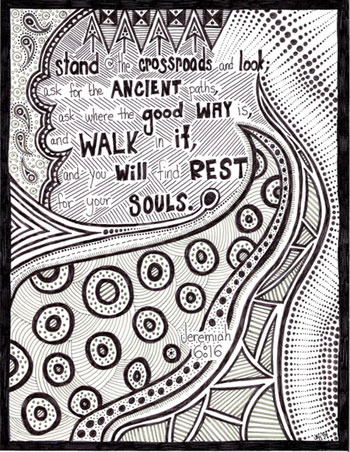 stand @ the crossroads and look;
ask for the ANCIENT paths,
ask where the good WAY is,
and WALK in it,
and you Will find REST
for your SOULS.
Jeremiah
6:16